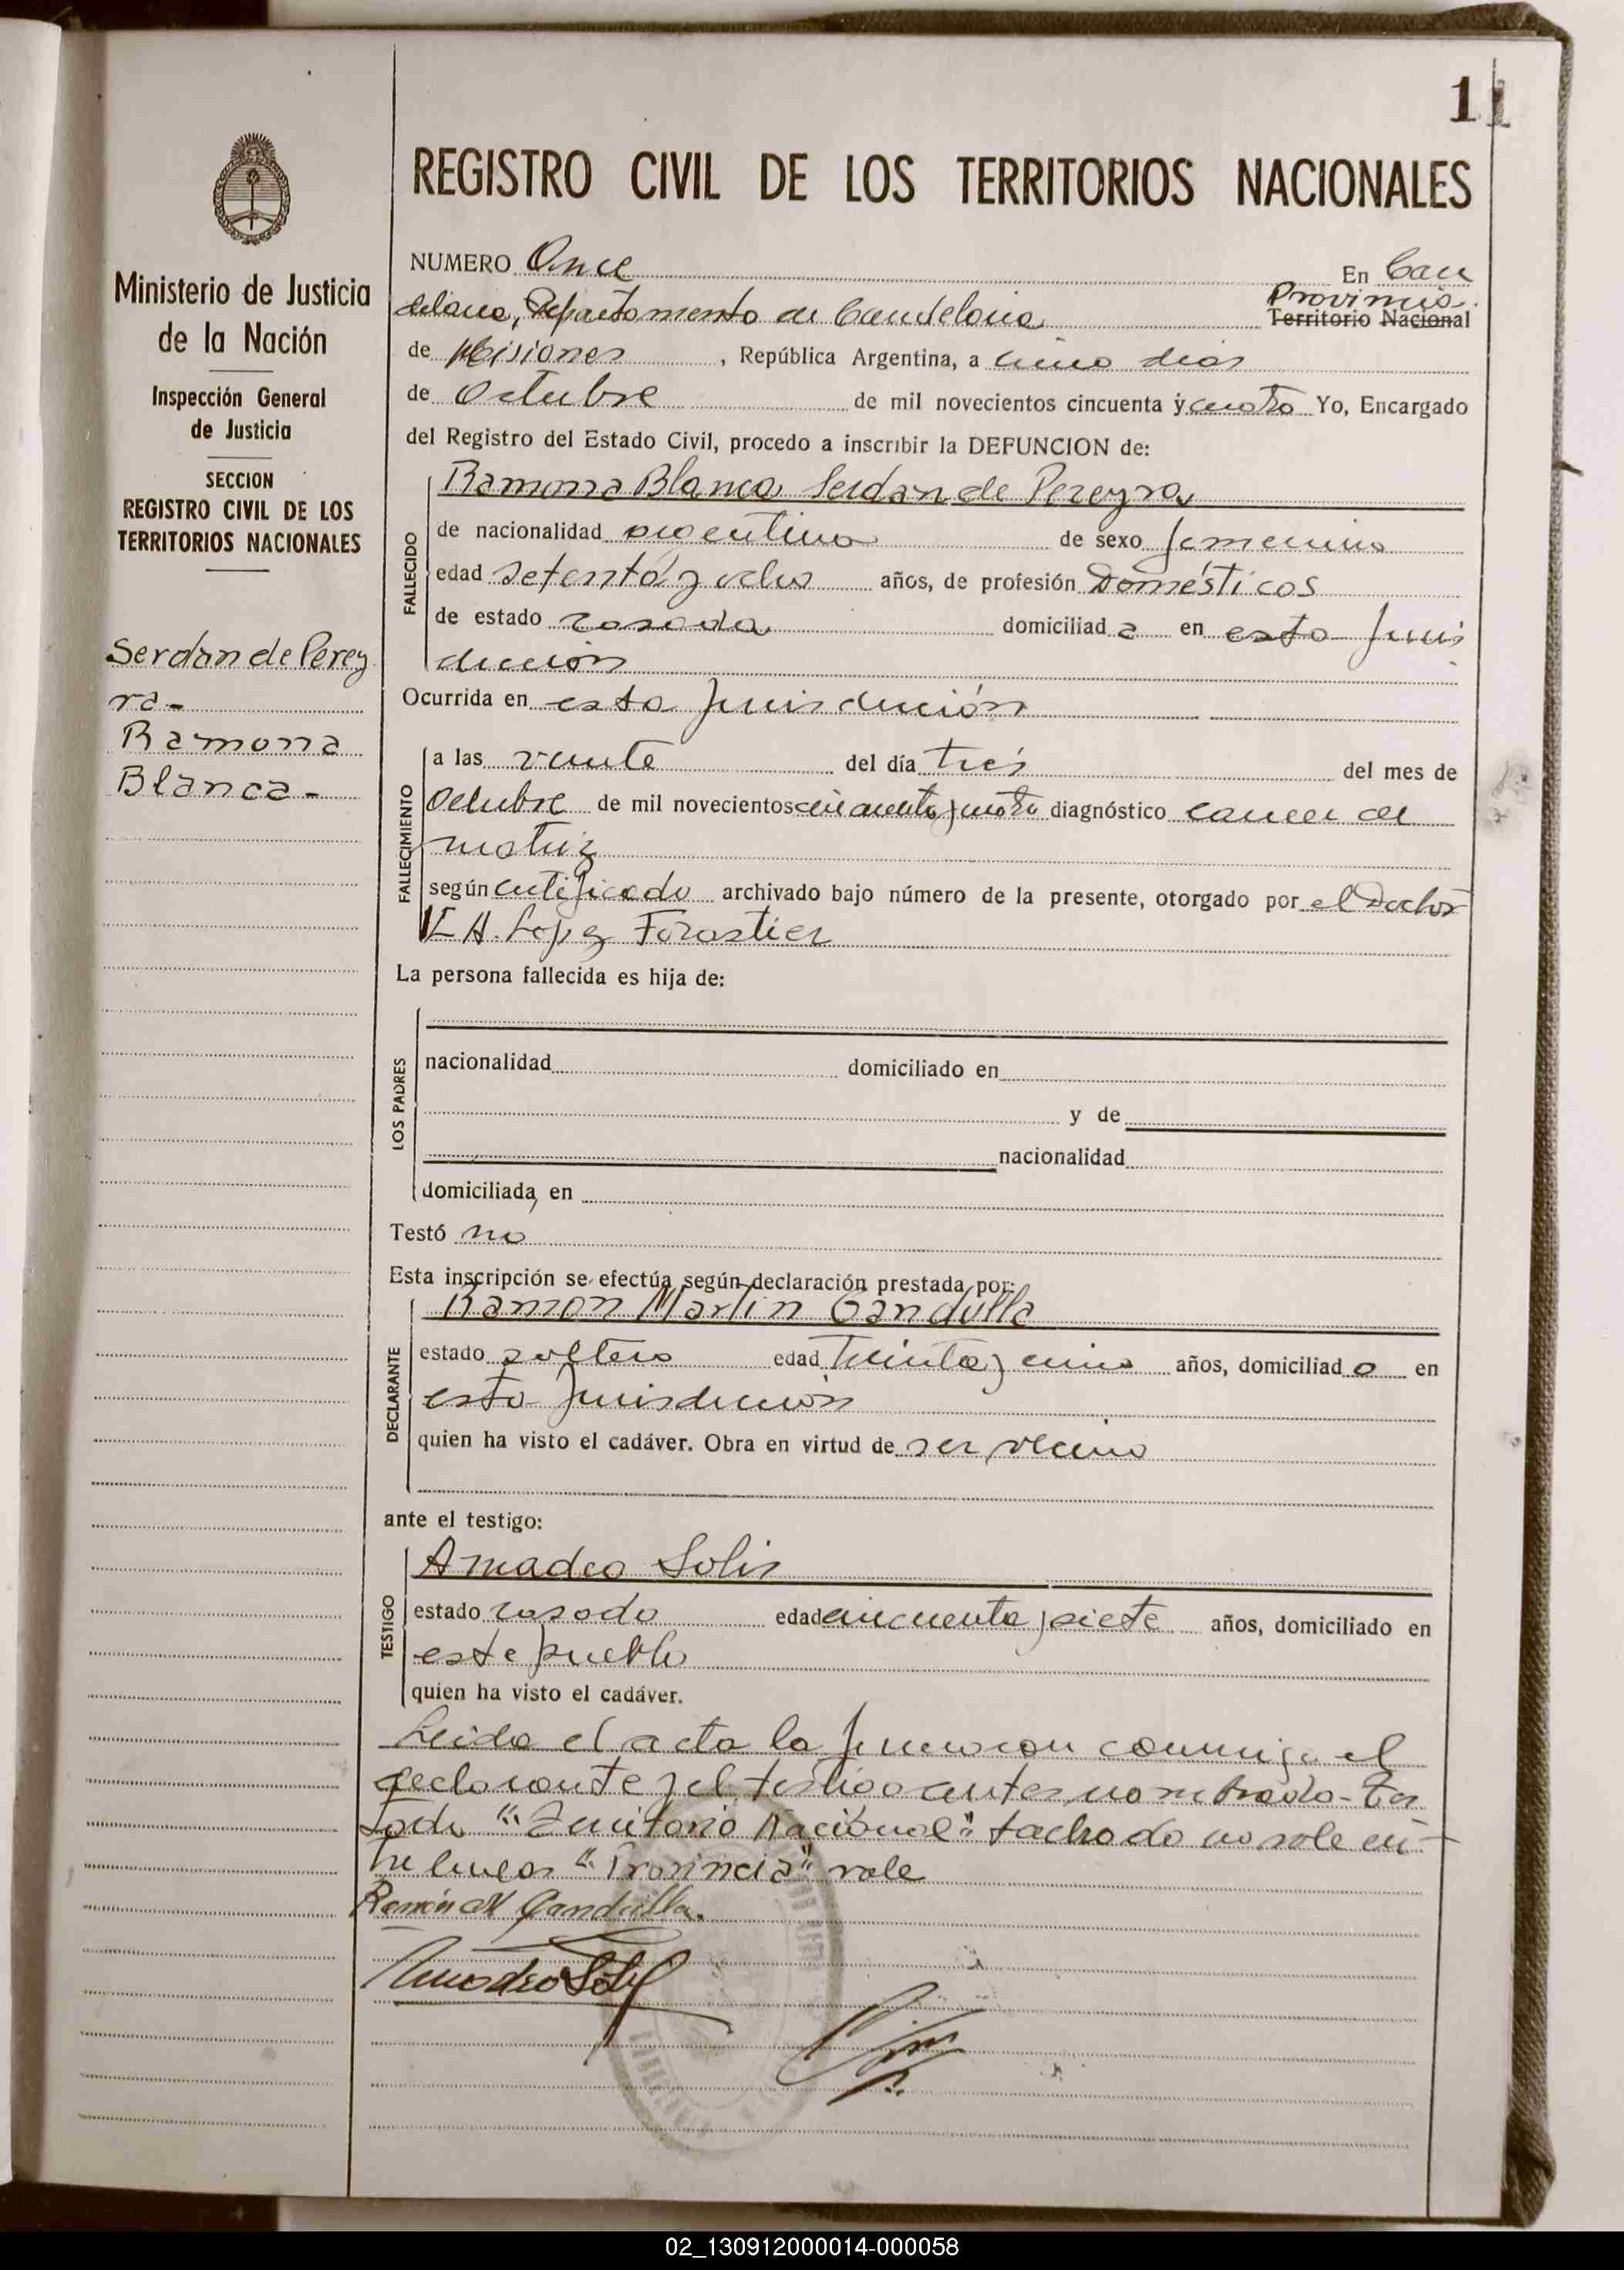 11
REGISTRO CIVIL DE LOS TERRITORIOS NACIONALES
Ministerio de Justicia
de la Nación
Inspección General
de Justicia
SECCION
REGISTRO CIVIL DE LOS
TERRITORIOS NACIONALES
Serdan de Perey
ra-
Ramona
Blanca-
NUMERO Once En Can
delaria, Departamento de Candelaria Provincia Territorio Nacional
de Misiones, República Argentina, a cinco dias
de Octubre de mil novecientos cincuenta y cuatro Yo, Encargado
del Registro del Estado Civil, procedo a inscribir la DEFUNCION de:
FALLECIDO
Ramona Blanca Serdan de Pereyra
de nacionalidad argentina de sexo femenino
edad setenta y ocho años, de profesión Domésticos
de estado casada domiciliad a en esta Juris
dicción
Ocurrida en esta Jurisdicción
FALLECIMIENTO
a las veinte del día tres del mes de
Octubre de mil novecientos cincuenta y cuatro diagnóstico cancer de
matriz
según certificado archivado bajo número de la presente, otorgado por el Doctor
V. H. Lopez Forastier
La persona fallecida es hija de:
LOS PADRES
nacionalidad domiciliado en
y de
nacionalidad
domiciliada en
Testó no
Esta inscripción se efectúa según declaración prestada por:
DECLARANTE
Ramon Martin Gandulla
estado soltero edad Treinta y cinco años, domiciliad o en
esta Jurisdicción
quien ha visto el cadáver. Obra en virtud de ser vecino
ante el testigo:
TESTIGO
Amadeo Solis
estado casado edad cincuenta y siete años, domiciliado en
este pueblo
quien ha visto el cadáver.
Leida el acta la firmaron conmigo el
declarante y el testigo antes nombrado- Tes
tado "Territorio Nacional" tachado no vale en-
tre lineas "Provincia" vale
Ramón M Gandulla.
Amadeo Solis
02_130912000014-000058